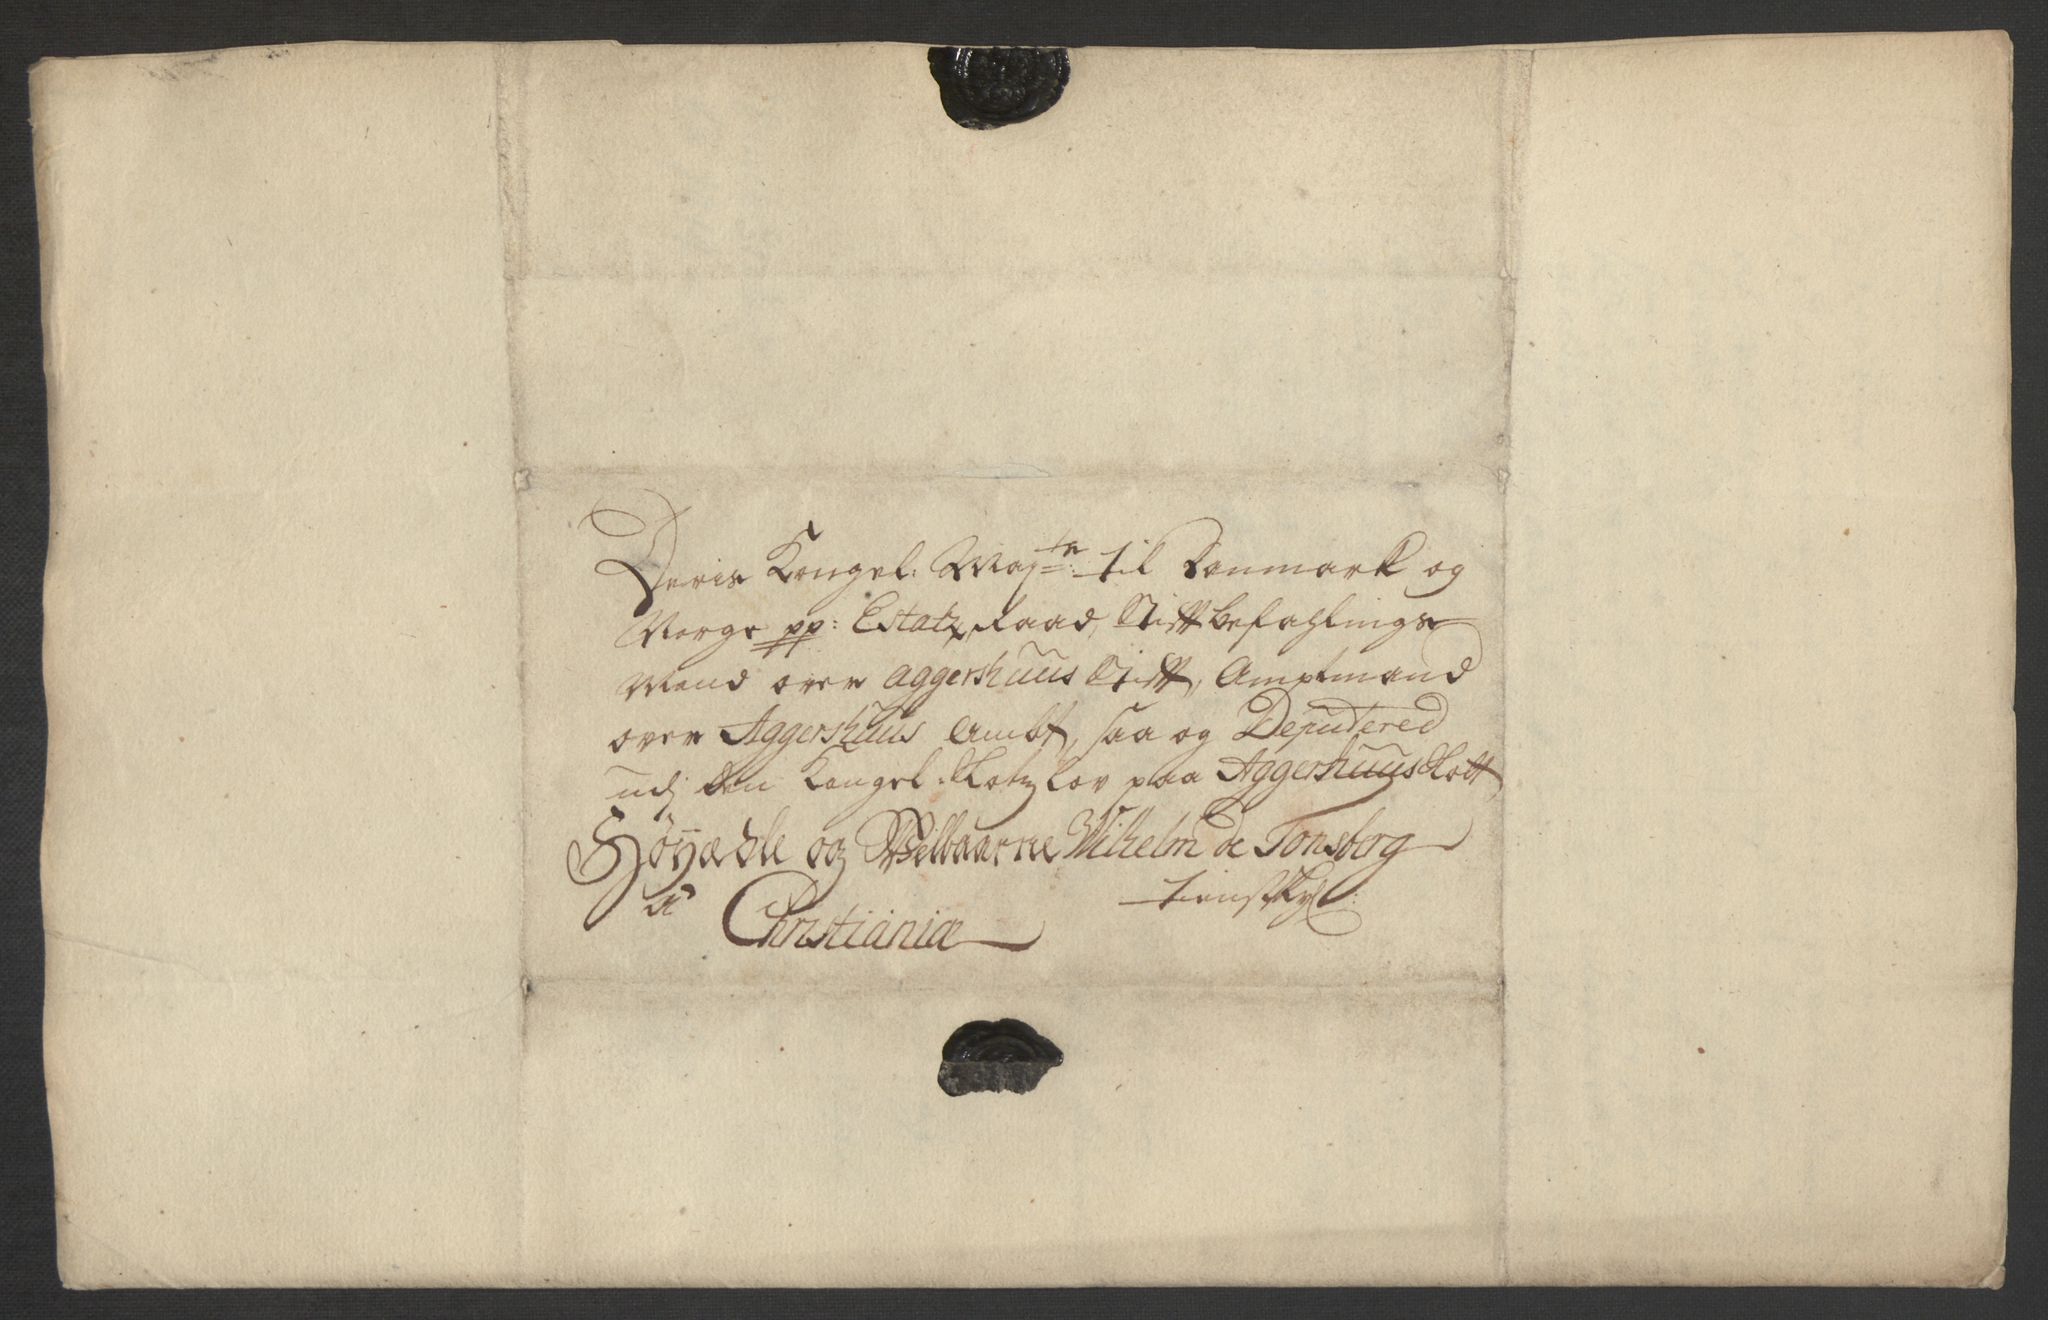 Deris Kongel: Maj:ts til Danmark og
Norge pp: Estatz Raad, Stiftbefahlings
Mand over Aggershuus Stift, Amptmand
over Aggershuus Ambt, saa og Deputered
udj den Kongel: Slotz Lov paa Aggershuus Slott
Höyædle og Welbaarne Wilhelm de Tonsberg
tienstl:
a
Christiania